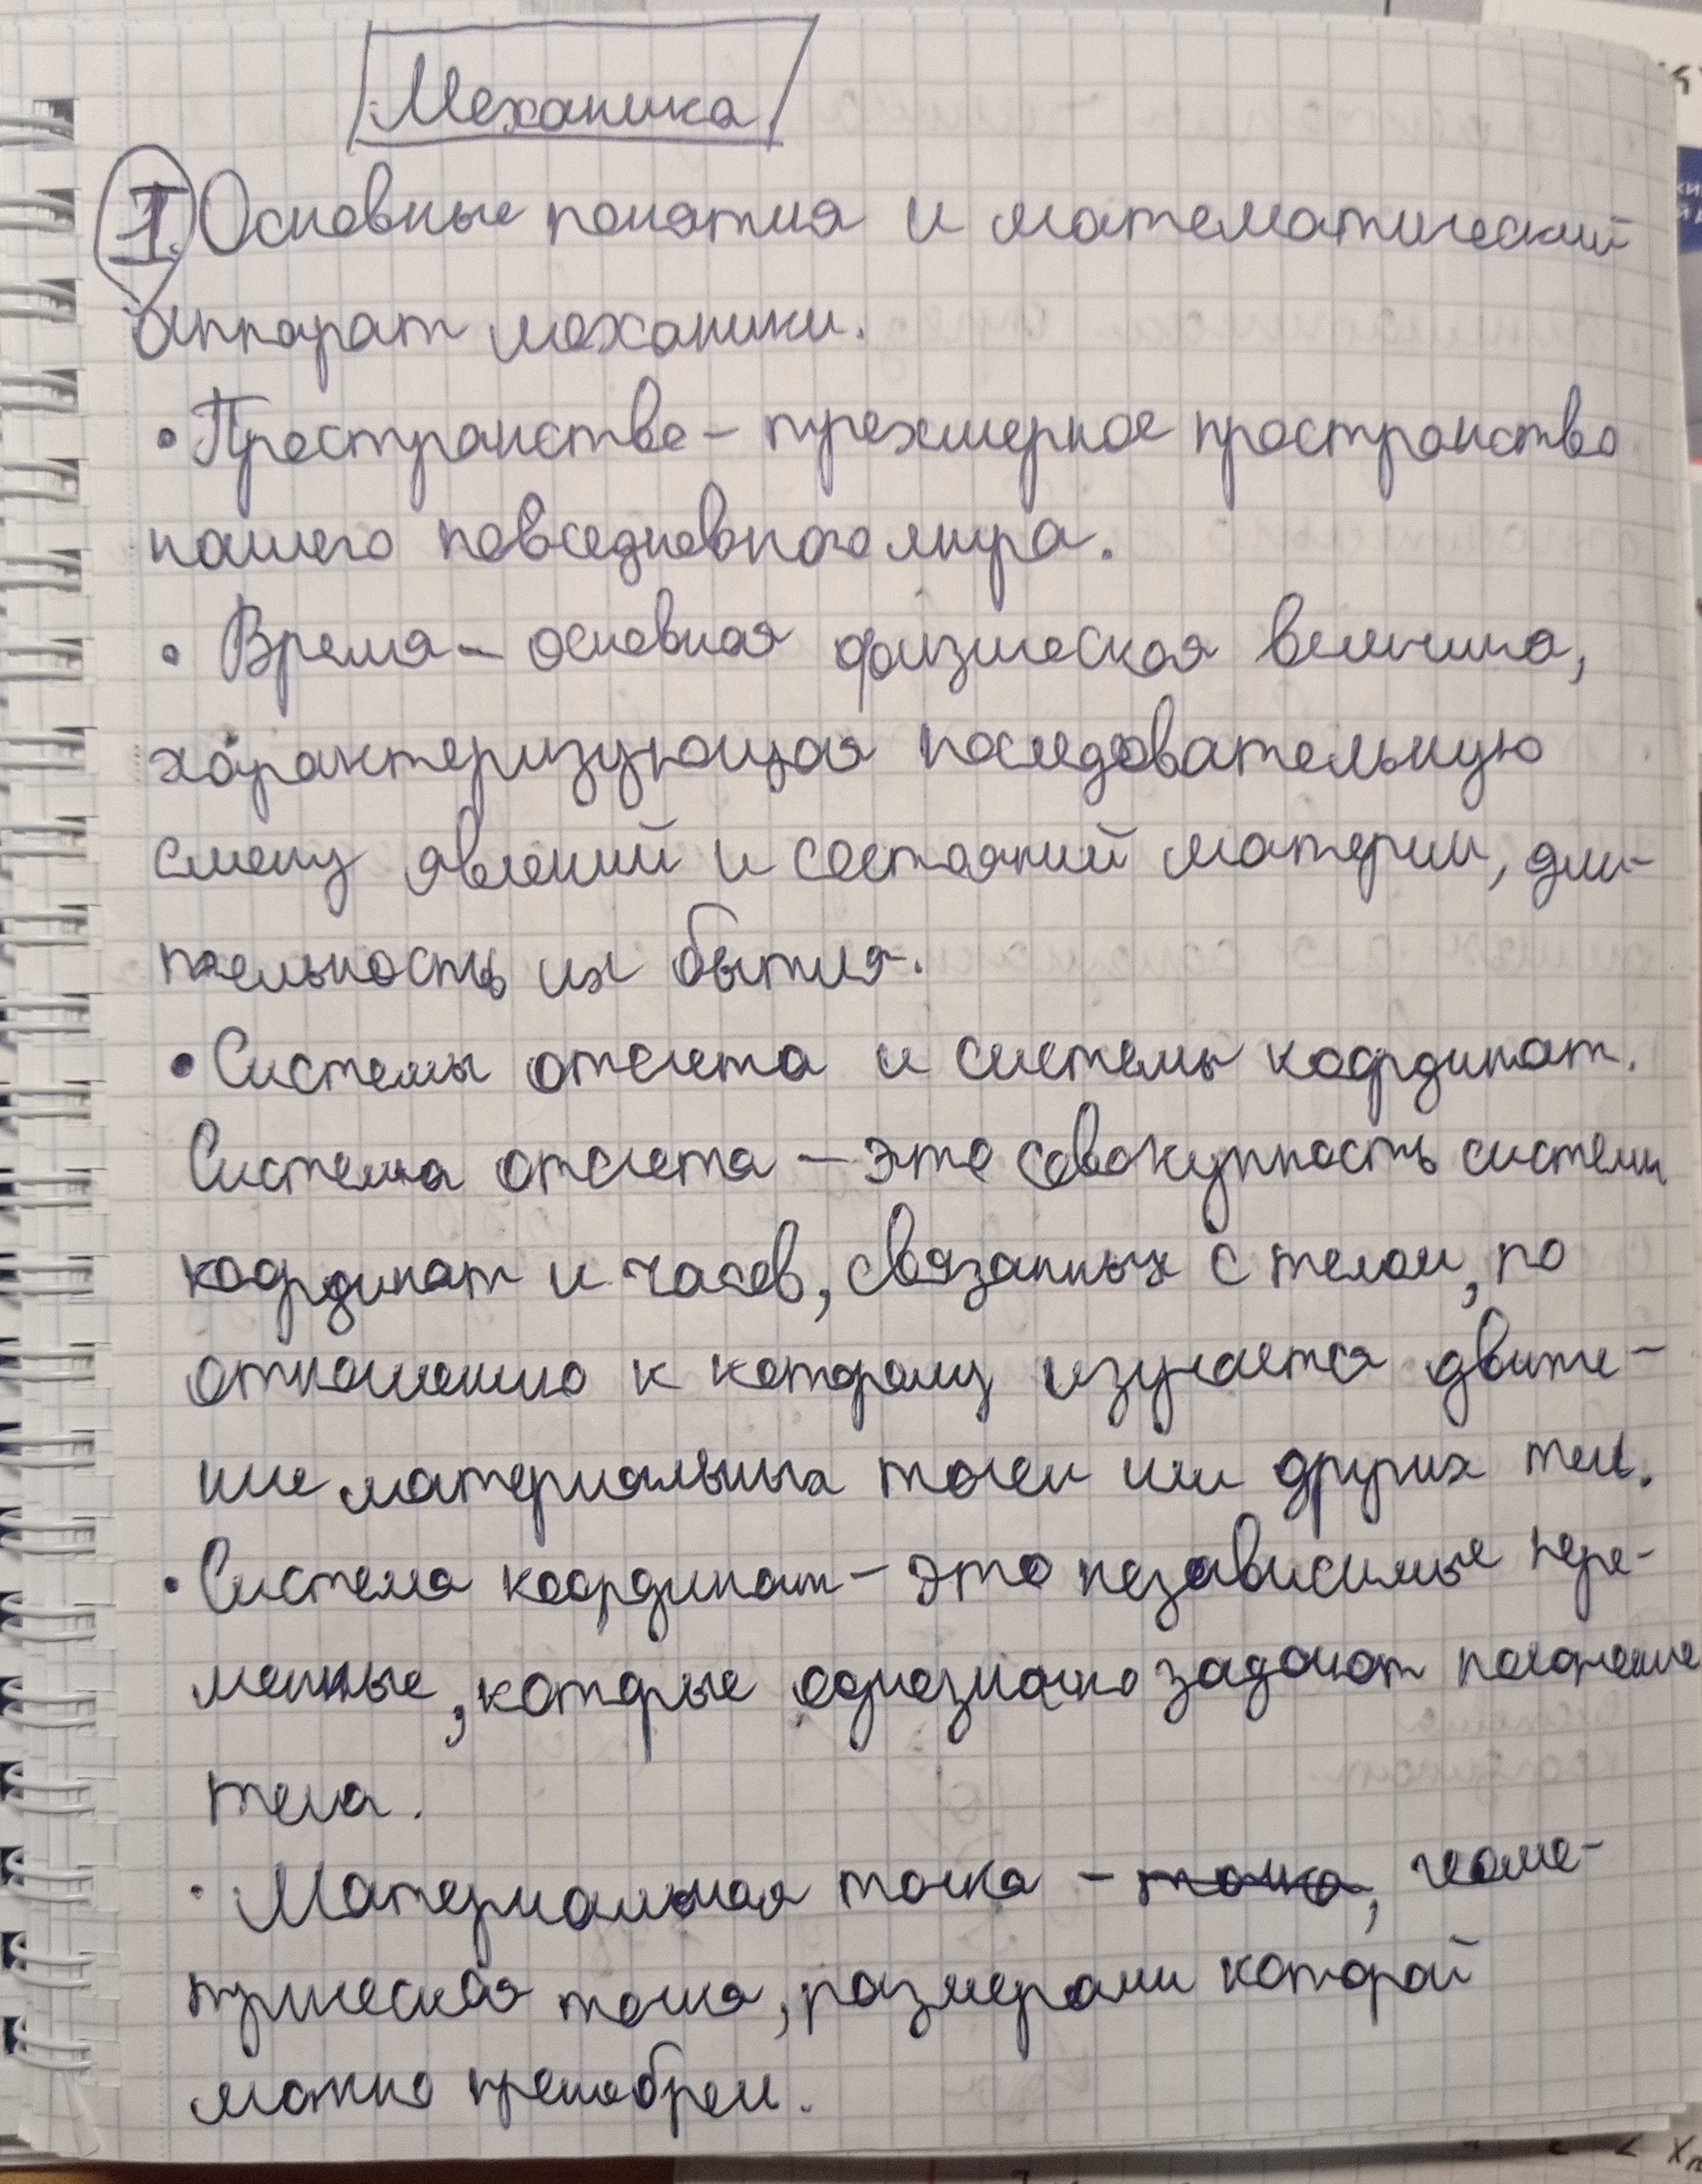 Механика
I. Основные понятия и математический
аппарат механики.
• Пространство – трехмерное пространство
нашего повседневного мира.
• Время – основная физическая величина,
характеризующая последовательную
смену явлений и состояний материи, дли-
тельность их бытия.
• Системы отсчета и системы координат.
Система отсчета – это совокупность системы
координат и часов, связанных с телом, по
отношению к которому изучается движе-
ние материальных точек или других тел.
• Система координат – это независимые пере-
менные, которые однозначно задают положение
тела.
• Материальная точка – точка, геоме-
трическая точка, размерами которой
можно пренебреч.